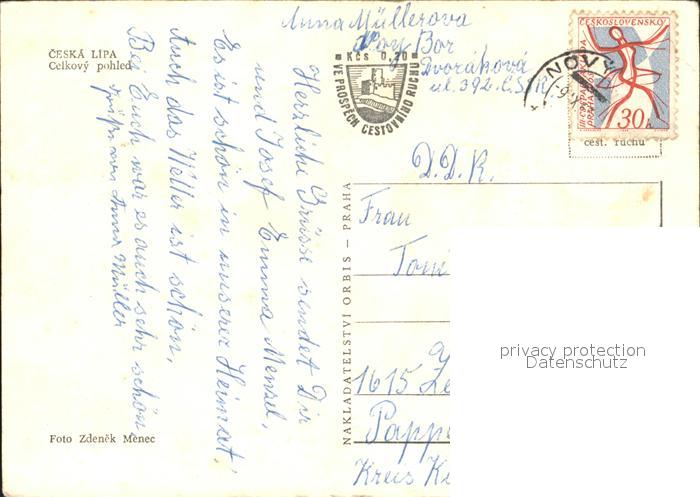 ČESKÁ LÍPA
Celkový pohled
Anna Müllerova
Nový Bor
Dvořáková
ul. 392. Č.S.R.
Kčs 0,20
VE PROSPĚCH CESTOVNÍHO RUCHU
ČESKOSLOVENSKO
III. CELOSTÁTNÍ
PRAHA
30 h
NOVÝ
cest. ruchu
Herzliche Grüsse sendet Dir
und Josef Emma Mensel.
Es ist schön in unserer Heimat!
Auch das Wetter ist schön.
Bei Euch war es auch sehr schön.
Grüße von Anna Müller
NAKLADATELSTVÍ ORBIS — PRAHA
D.D.R.
Frau
Toni
1615 Ze
Papp
Kreis K
Foto Zdeněk Menec
privacy protection
Datenschutz